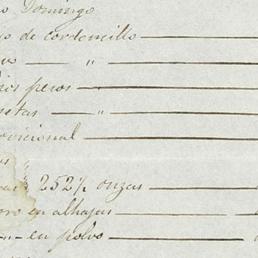 Domingo
de cordoncillo
"
pesos
"
provincial
252½ onzas
oro en alhajas
en polvo